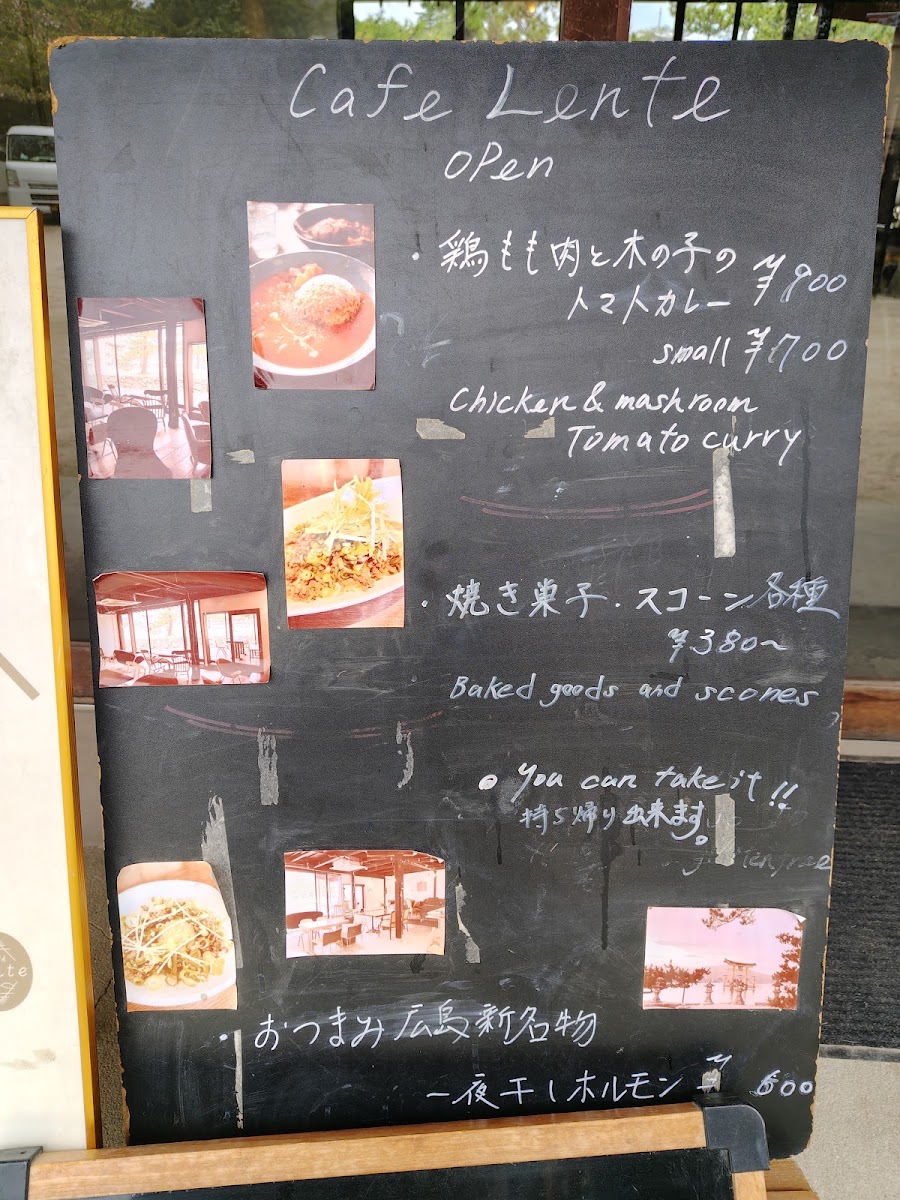 Cafe Lente
open
・鶏もも肉と木の子の
トマトカレー ¥900
small ¥700
Chicken & mashroom
Tomato curry
・焼き菓子・スコーン各種
¥380〜
Baked goods and scones
● You can take it!!
持ち帰り出来ます。
・おつまみ広島新名物
一夜干しホルモン ¥600